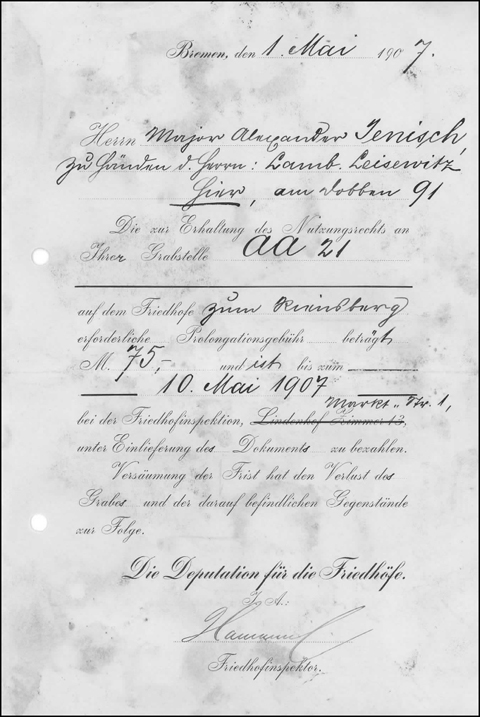 Bremen, den 1. Mai 1907.
Herrn Major Alexander Jenisch,
zu Händen d. Herrn: Lamb. Leisewitz
Hier, am Dobben 91
Die zur Erhaltung des Nutzungsrechts an
Ihrer Grabstelle aa 21
auf dem Friedhofe zum Riensberg
erforderliche Prolongationsgebühr beträgt
M. 75,- und ist bis zum
10. Mai 1907
Markt Str. 1,
bei der Friedhofinspektion, Lindenhof Zimmer 13,
unter Einlieferung des Dokuments zu bezahlen.
Versäumung der Frist hat den Verlust des
Grabes und der darauf befindlichen Gegenstände
zur Folge.
Die Deputation für die Friedhöfe.
I. A.:
Friedhofinspektor.